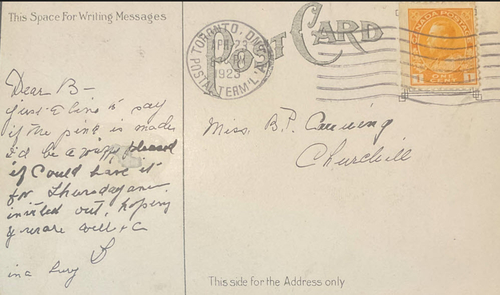 This Space For Writing Messages
POST CARD
TORONTO, ONT.
APR 23
PM
1923
POSTAL TERM'L "A"
CANADA POSTAGE
ONE CENT
1 1
Dear B-
just a line to say
if the is made
I'd be pleased
if could have it
for Thursday am
invited out, hoping
you are well + c
in a hurry
Miss. B.P.
Churchill
This side for the Address only